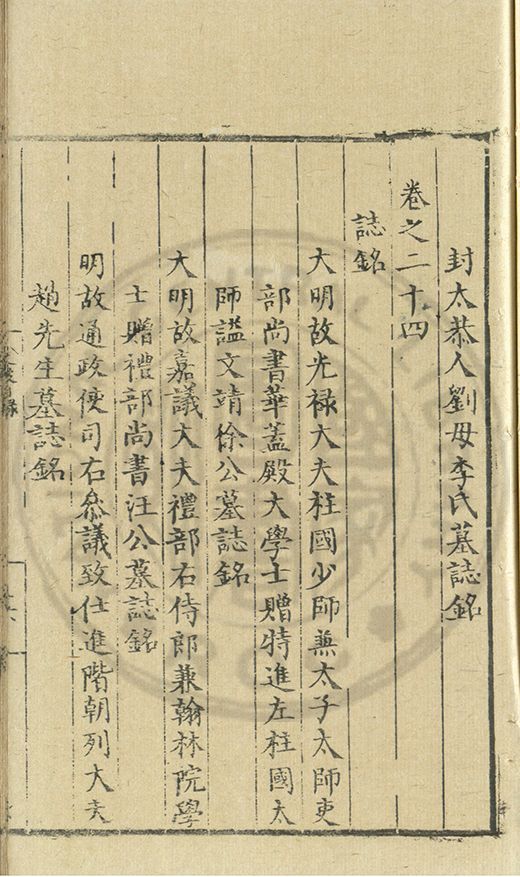 封太恭人劉母李氏墓誌銘
卷之二十四
誌銘
大明故光祿大夫柱國少師兼太子太師吏
部尚書華蓋殿大學士贈特進左柱國太
師謚文靖徐公墓誌銘
大明故嘉議大夫禮部右侍郎兼翰林院學
士贈禮部尚書汪公墓誌銘
明故通政使司右叅議致仕進階朝列大夫
趙先生墓誌銘